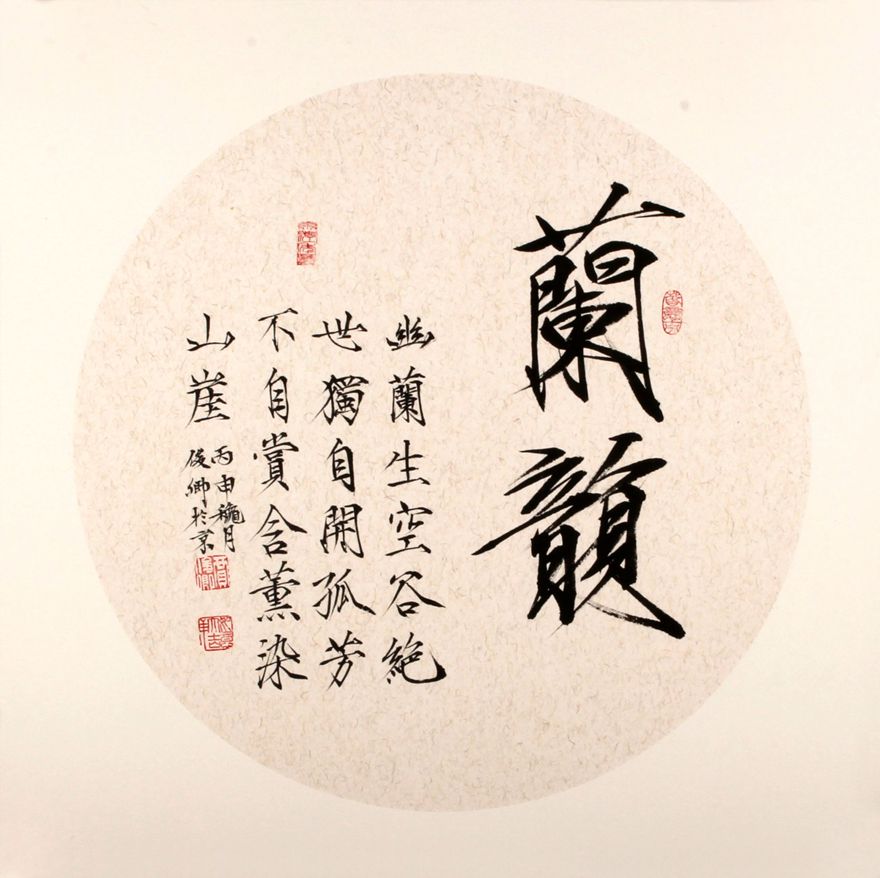 蘭韻
幽蘭生空谷絶
世獨自開孤芳
不自賞含薰染
山崖
丙申穐月
俊卿於京